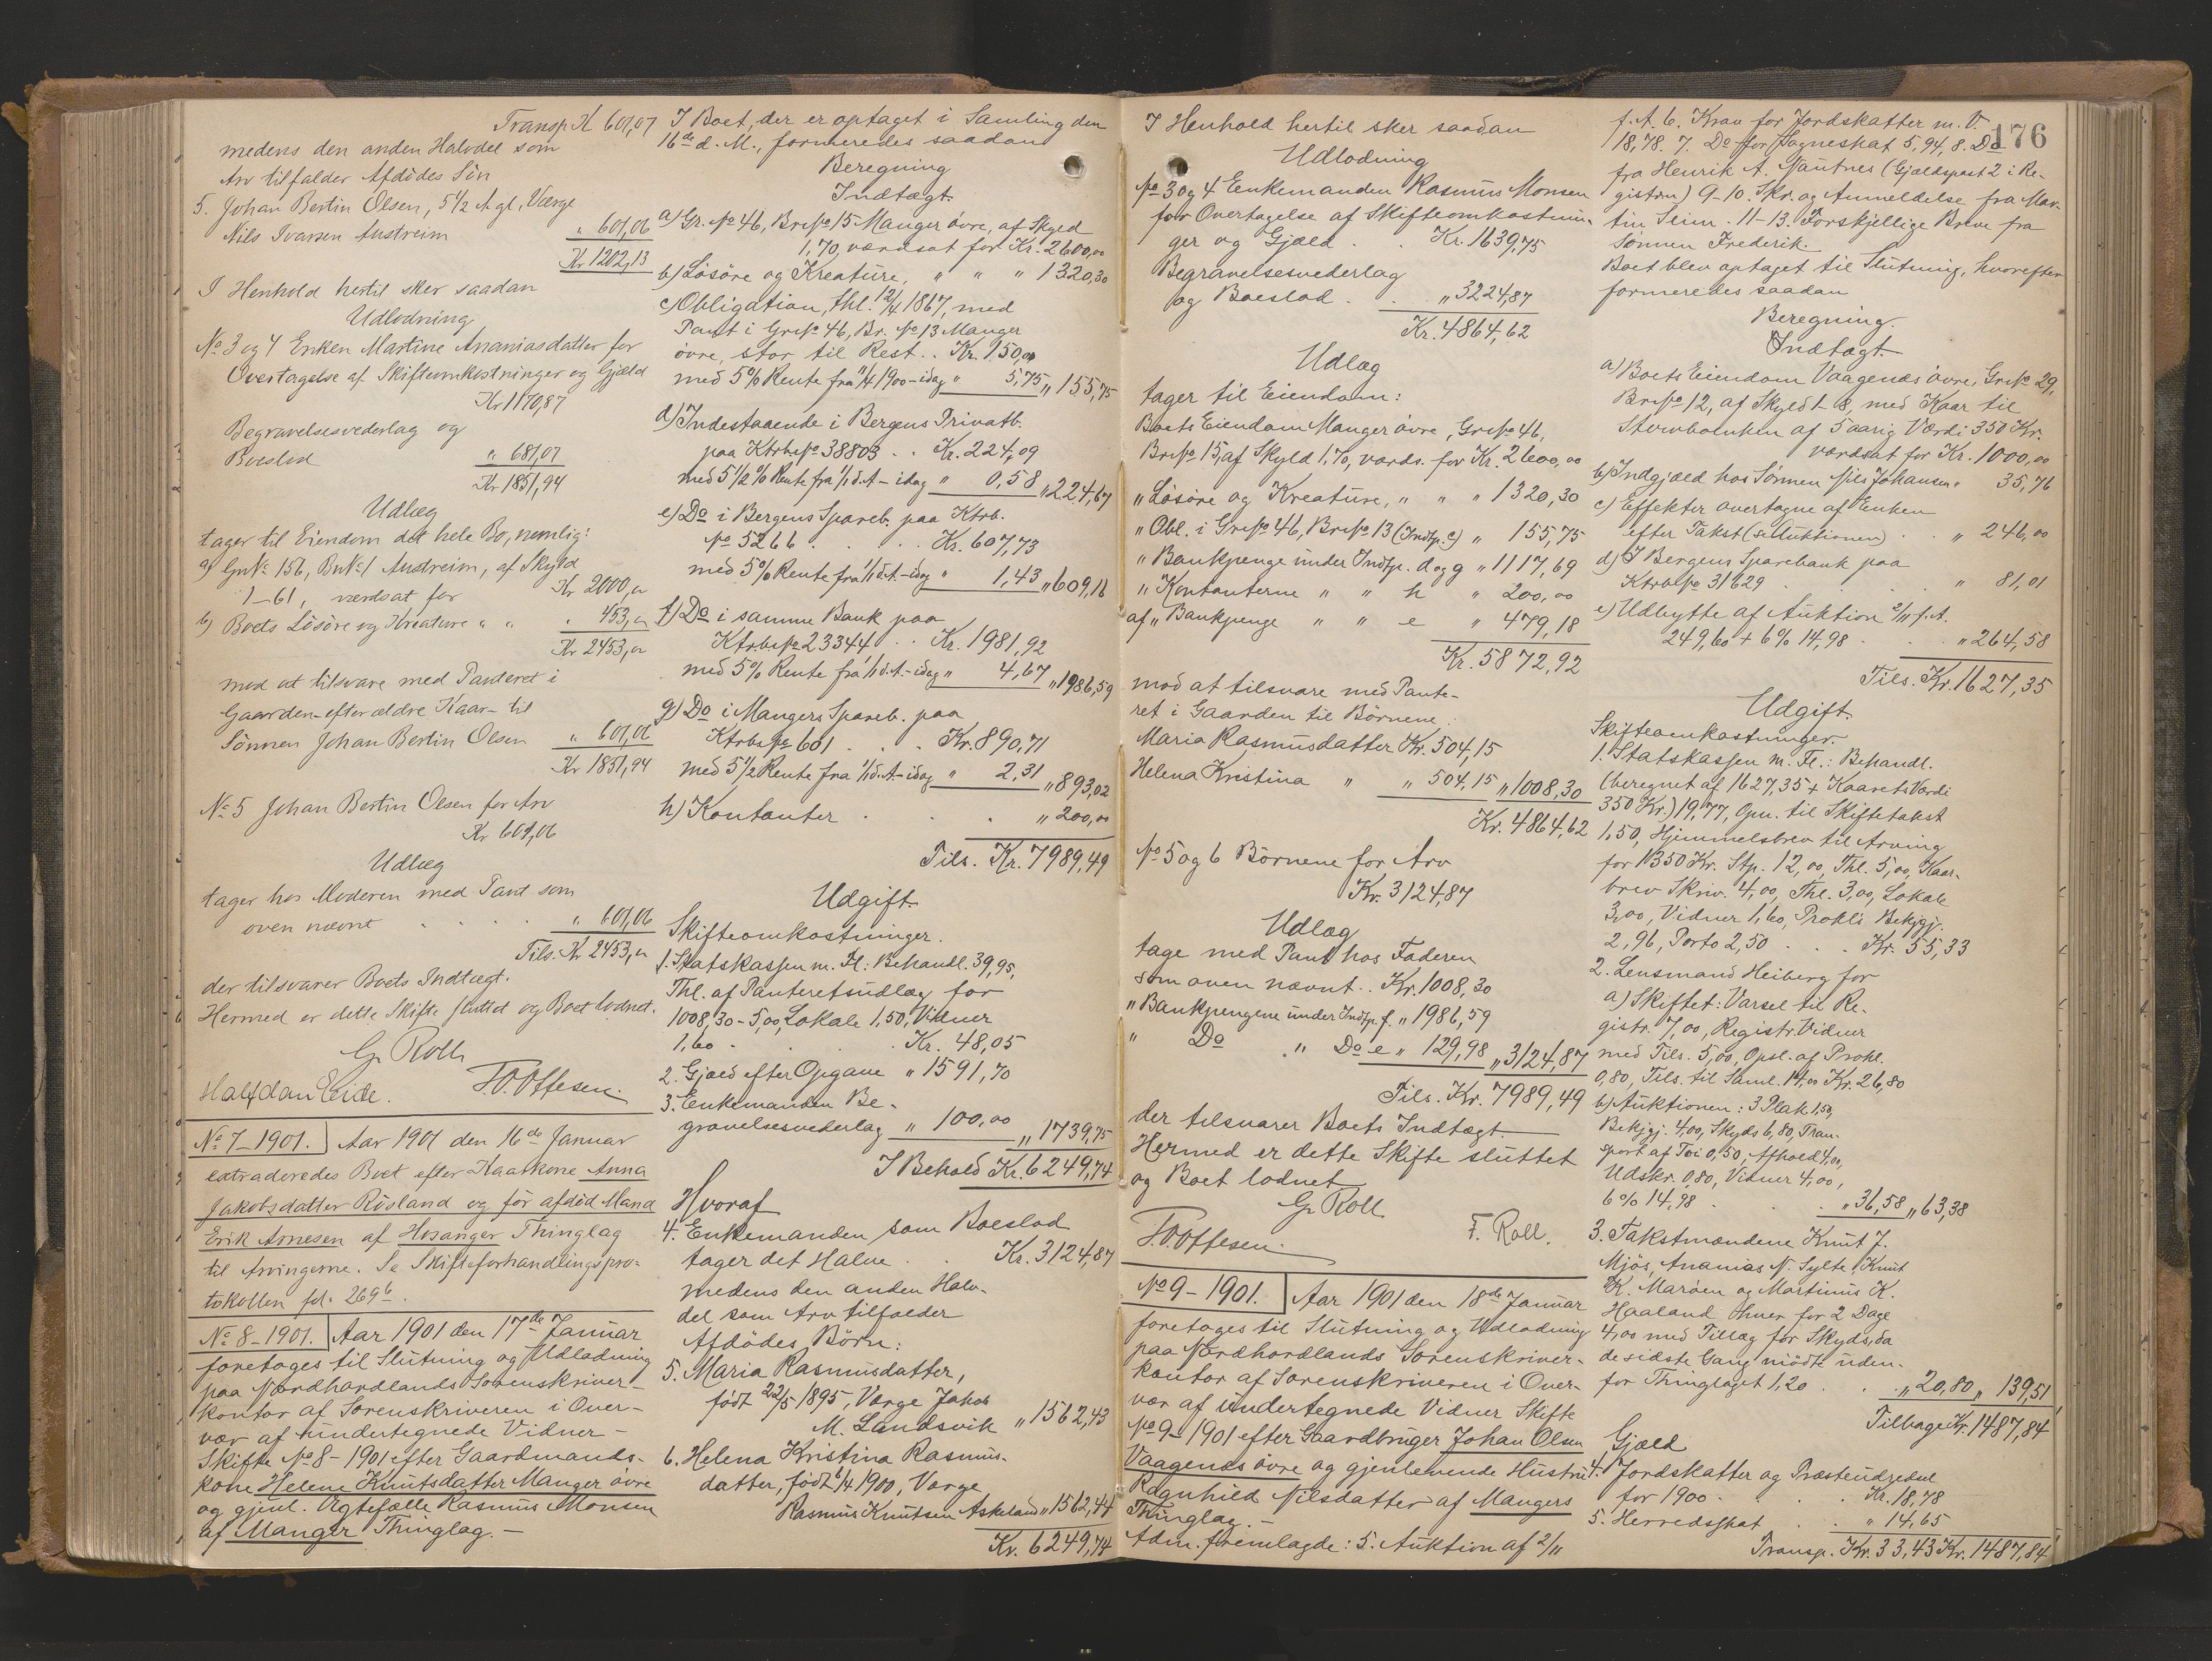 Transp. Kr 601,07
medens den anden Halvdel som
Arv tilfalder Afdödes Sön
5. Johan Bertin Olsen, 5 1/2 A. gl., Værge
Nils Ivarsen Austreim " 601,06
Kr 1202,13
I Henhold hertil sker saadan
Udlodning
No 3 og 4 Enken Martine Ananiasdatter for
Overtagelse af Skifteomkostninger og Gjæld
Kr 1170,87
Begravelsesvederlag og
Boeslod " 681,07
Kr 1851,94
Udlæg
tager til Eiendom det hele Bo, nemlig:
a) GrNo 156, BrNo 1 Austreim, af Skyld
1-61, værdsat for Kr 2000,00
b) Boets Lösöre og Kreature " " " 453,00
Kr 2453,00
mod at tilsvare med Panteret i
Gaarden - efter ældre Kaar - til
Sönnen Johan Bertin Olsen " 601,06
Kr 1851,94
No 5 Johan Bertin Olsen for Arv
Kr 601,06
Udlæg
tager hos Moderen med Pant som
oven nævnt . . . . " 601,06
Tils. Kr 2453,00
der tilsvarer Boets Indtægt.
Hermed er dette Skifte sluttet og Boet lodnet.
Gr. Roll
Halfdan Eide. T.O. Offesen.
No 7-1901. Aar 1901 den 16de Januar
extraderedes Boet efter Kaarkone Anna
Jakobsdatter Risland og för afdöd Mand
Erik Arnesen af Hosanger Thinglag
til Arvingerne. Se Skifteforhandlingspro-
tokollen fol. 269b.
No 8-1901. Aar 1901 den 17de Januar
foretoges til Slutning og Udlodning
paa Nordhordlands Sorenskriver-
kontor af Sorenskriveren i Over-
vær af undertegnede Vidner -
Skifte No 8-1901 efter Gaardmands-
kone Helene Knutsdatter Manger övre
og gjenl. Ægtefælle Rasmus Monsen
af Manger Thinglag. -
I Boet, der er optaget i Samling den
16de d. M., formeredes saadan
Beregning
Indtægt.
a) Gr. No 46, BrNo 15 Manger övre, af Skyld
1,70, værdsat for Kr. 2600,00
b) Lösöre og Kreature, " " " 1320,30
c) Obligation, thl. 12/4 1867, med
Pant i GrNo 46, Br. No 13 Manger
övre, stor til Rest . . Kr. 150,00
med 5% Rente fra 11/4 1900 - idag " 5,75 " 155,75
d) Indestaaende i Bergens Privatb.
paa KtrbNo 38803 . . Kr. 224,09
med 5 1/2 % Rente fra 1/1 d.A. - idag " 0,58 " 224,67
e) Do i Bergens Spareb. paa Ktrb.
No 5266 . . . . Kr. 607,73
med 5% Rente fra 1/1 d.A. - idag " 1,43 " 609,16
f) Do i samme Bank paa
KtrbNo 23344 . . Kr. 1981,92
med 5% Rente fra 1/1 d.A. - idag " 4,67 " 1986,59
g) Do i Mangers Spareb. paa
KtrbNo 601 . . . Kr. 890,71
med 5 1/2 Rente fra 1/1 d.A. - idag " 2,31 " 893,02
h) Kontanter . . . " 200,00
Tils. Kr. 7989,49
Udgift.
Skifteomkostninger.
1. Statskassen m. Fl: Behandl. 39,95,
Thl. af Panteretsudlæg for
1008,30 - 5,00, Lokale 1,50, Vidner
1,60 . . . . Kr. 48,05
2. Gjæld efter Opgave " 1591,70
3. Enkemanden Be-
gravelsesvederlag " 100,00 " 1739,75
I Behold Kr. 6249,74
Hvoraf
4. Enkemanden som Boeslod
tager det Halve . . Kr. 3124,87
medens den anden Halv-
del som Arv tilfalder
Afdödes Börn:
5. Maria Rasmusdatter,
födt 22/5 1895, Værge Jakob
M. Landsvik " 1562,43
6. Helena Kristina Rasmus-
datter, födt 6/4 1900, Værge
Rasmus Knutsen Askeland " 1562,44
Kr. 6249,74
I Henhold hertil sker saadan
Udlodning
No 3 og 4 Enkemanden Rasmus Monsen
for Overtagelse af Skifteomkostnin-
ger og Gjæld . . Kr. 1639,75
Begravelsesvederlag
og Boeslod . . " 3224,87
Kr. 4864,62
Udlæg
tager til Eiendom:
Boets Eiendom Manger övre, GrNo 46,
BrNo 15, af Skyld 1,70, værds. for Kr. 2600,00
" Lösöre og Kreature, " " " 1320,30
" Obl. i GrNo 46, BrNo 13 (Indtp. c) " 155,75
" Bankpenge under Indtp. d og g " 1117,69
" Kontanterne " " h " 200,00
af " Bankpenge " " e " 479,18
Kr. 5872,92
mod at tilsvare med Pante-
ret i Gaarden til Börnene:
Maria Rasmusdatter Kr. 504,15
Helena Kristina " " 504,15 " 1008,30
Kr. 4864,62
No 5 og 6 Börnene for Arv
Kr. 3124,87
Udlæg
tage med Pant hos Faderen
som oven nævnt . . Kr. 1008,30
" Bankpengene under Indtp. f. " 1986,59
" Do " Do e " 129,98 " 3124,87
Tils. Kr. 7989,49
der tilsvarer Boets Indtægt.
Hermed er dette Skifte sluttet
og Boet lodnet
Gr. Roll
T.O. Offesen. F. Roll.
No 9-1901. Aar 1901 den 18de Januar
foretoges til Slutning og Udlodning
paa Nordhordlands Sorenskriver-
kontor af Sorenskriveren i Over-
vær af undertegnede Vidner Skifte
No 9-1901 efter Gaardbruger Johan Olsen
Vaagenes övre og gjenlevende Hustru
Ragnhild Nilsdatter af Mangers
Thinglag. -
Adm. fremlagde: 5. Auktion af 2/11
176
f. A. 6. Krav for Jordskatter m. V.
18,78. 7. Do for Sogneskat 5,94, 8. Do
fra Henrik A. Nautnes (Gjældspost 2 i Re-
gistru) 9-10. Skr. og Anmeldelse fra Mar-
tin Seim. 11-13. Forskjellige Breve fra
Sönnen Frederik.
Boet blev optaget til Slutning, hvorefter
formeredes saadan
Beregning.
Indtægt.
a) Boets Eiendom Vaagenes övre, GrNo 29,
BrNo 12, af Skyld 1-8, med Kaar til
Stervboenken af 5 aarig Værdi 350 Kr.
værdsat for Kr. 1000,00
b) Indgjæld hos Sönnen Nils Johansen " 35,76
c) Effekter overtagne af Enken
efter Takst (se Auktionen) . . " 246,00
d) I Bergens Sparebank paa
KtrbNo 31629 . . . " 81,01
e) Udbytte af Auktion 2/11 f. A.
249,60 + 6% 14,98 . . " 264,58
Tils. Kr. 1627,35
Udgift.
Skifteomkostninger.
1. Statskassen m. Fl.: Behandl.
(beregnet af 1627,35 + Kaarets Værdi
350 Kr.) 19,77, Opn. til Skiftetakst
1,50, Hjemmelsbrev til Arving
for 1350 Kr. Stp. 12,00, Thl. 5,00, Kaar-
brev Skriv. 4,00, Thl. 3,00, Lokale
3,00, Vidner 1,60, Prokl's Bekjgj.
2,96, Porto 2,50 . . . Kr. 55,33
2. Lensmand Heiberg for
a) Skiftet: Varsel til Re-
gistr. 7,00, Registr. Vidner
med Tils. 5,00, Opsl. af Prokl.
0,80, Tils. til Saml. 14,00 Kr. 26,80
b) Auktionen: 3 Plak. 1,50,
Bekjgj. 4,00, Skyds 6,80, Tran-
sport af Töi 0,50, Afhold 4,00,
Udskr. 0,80, Vidner 4,00,
6% 14,98 . . . " 36,58 " 63,38
3. Takstmændene Knut J.
Mjös, Ananias N. Sylte, Knut
K. Maröen og Martinus K.
Haaland hver for 2 Dage
4,00 med Tillæg for Skyds, da
de sidste Gang mödte uden-
for Thinglaget 1,20 . . " 20,80 " 139,51
Tilbage Kr. 1487,84
Gjæld
4. Jordskatter og Præsteudredsel
for 1900 . . . . Kr. 18,78
5. Herredsskat . . " 14,65
Transp. Kr. 33,43 Kr. 1487,84